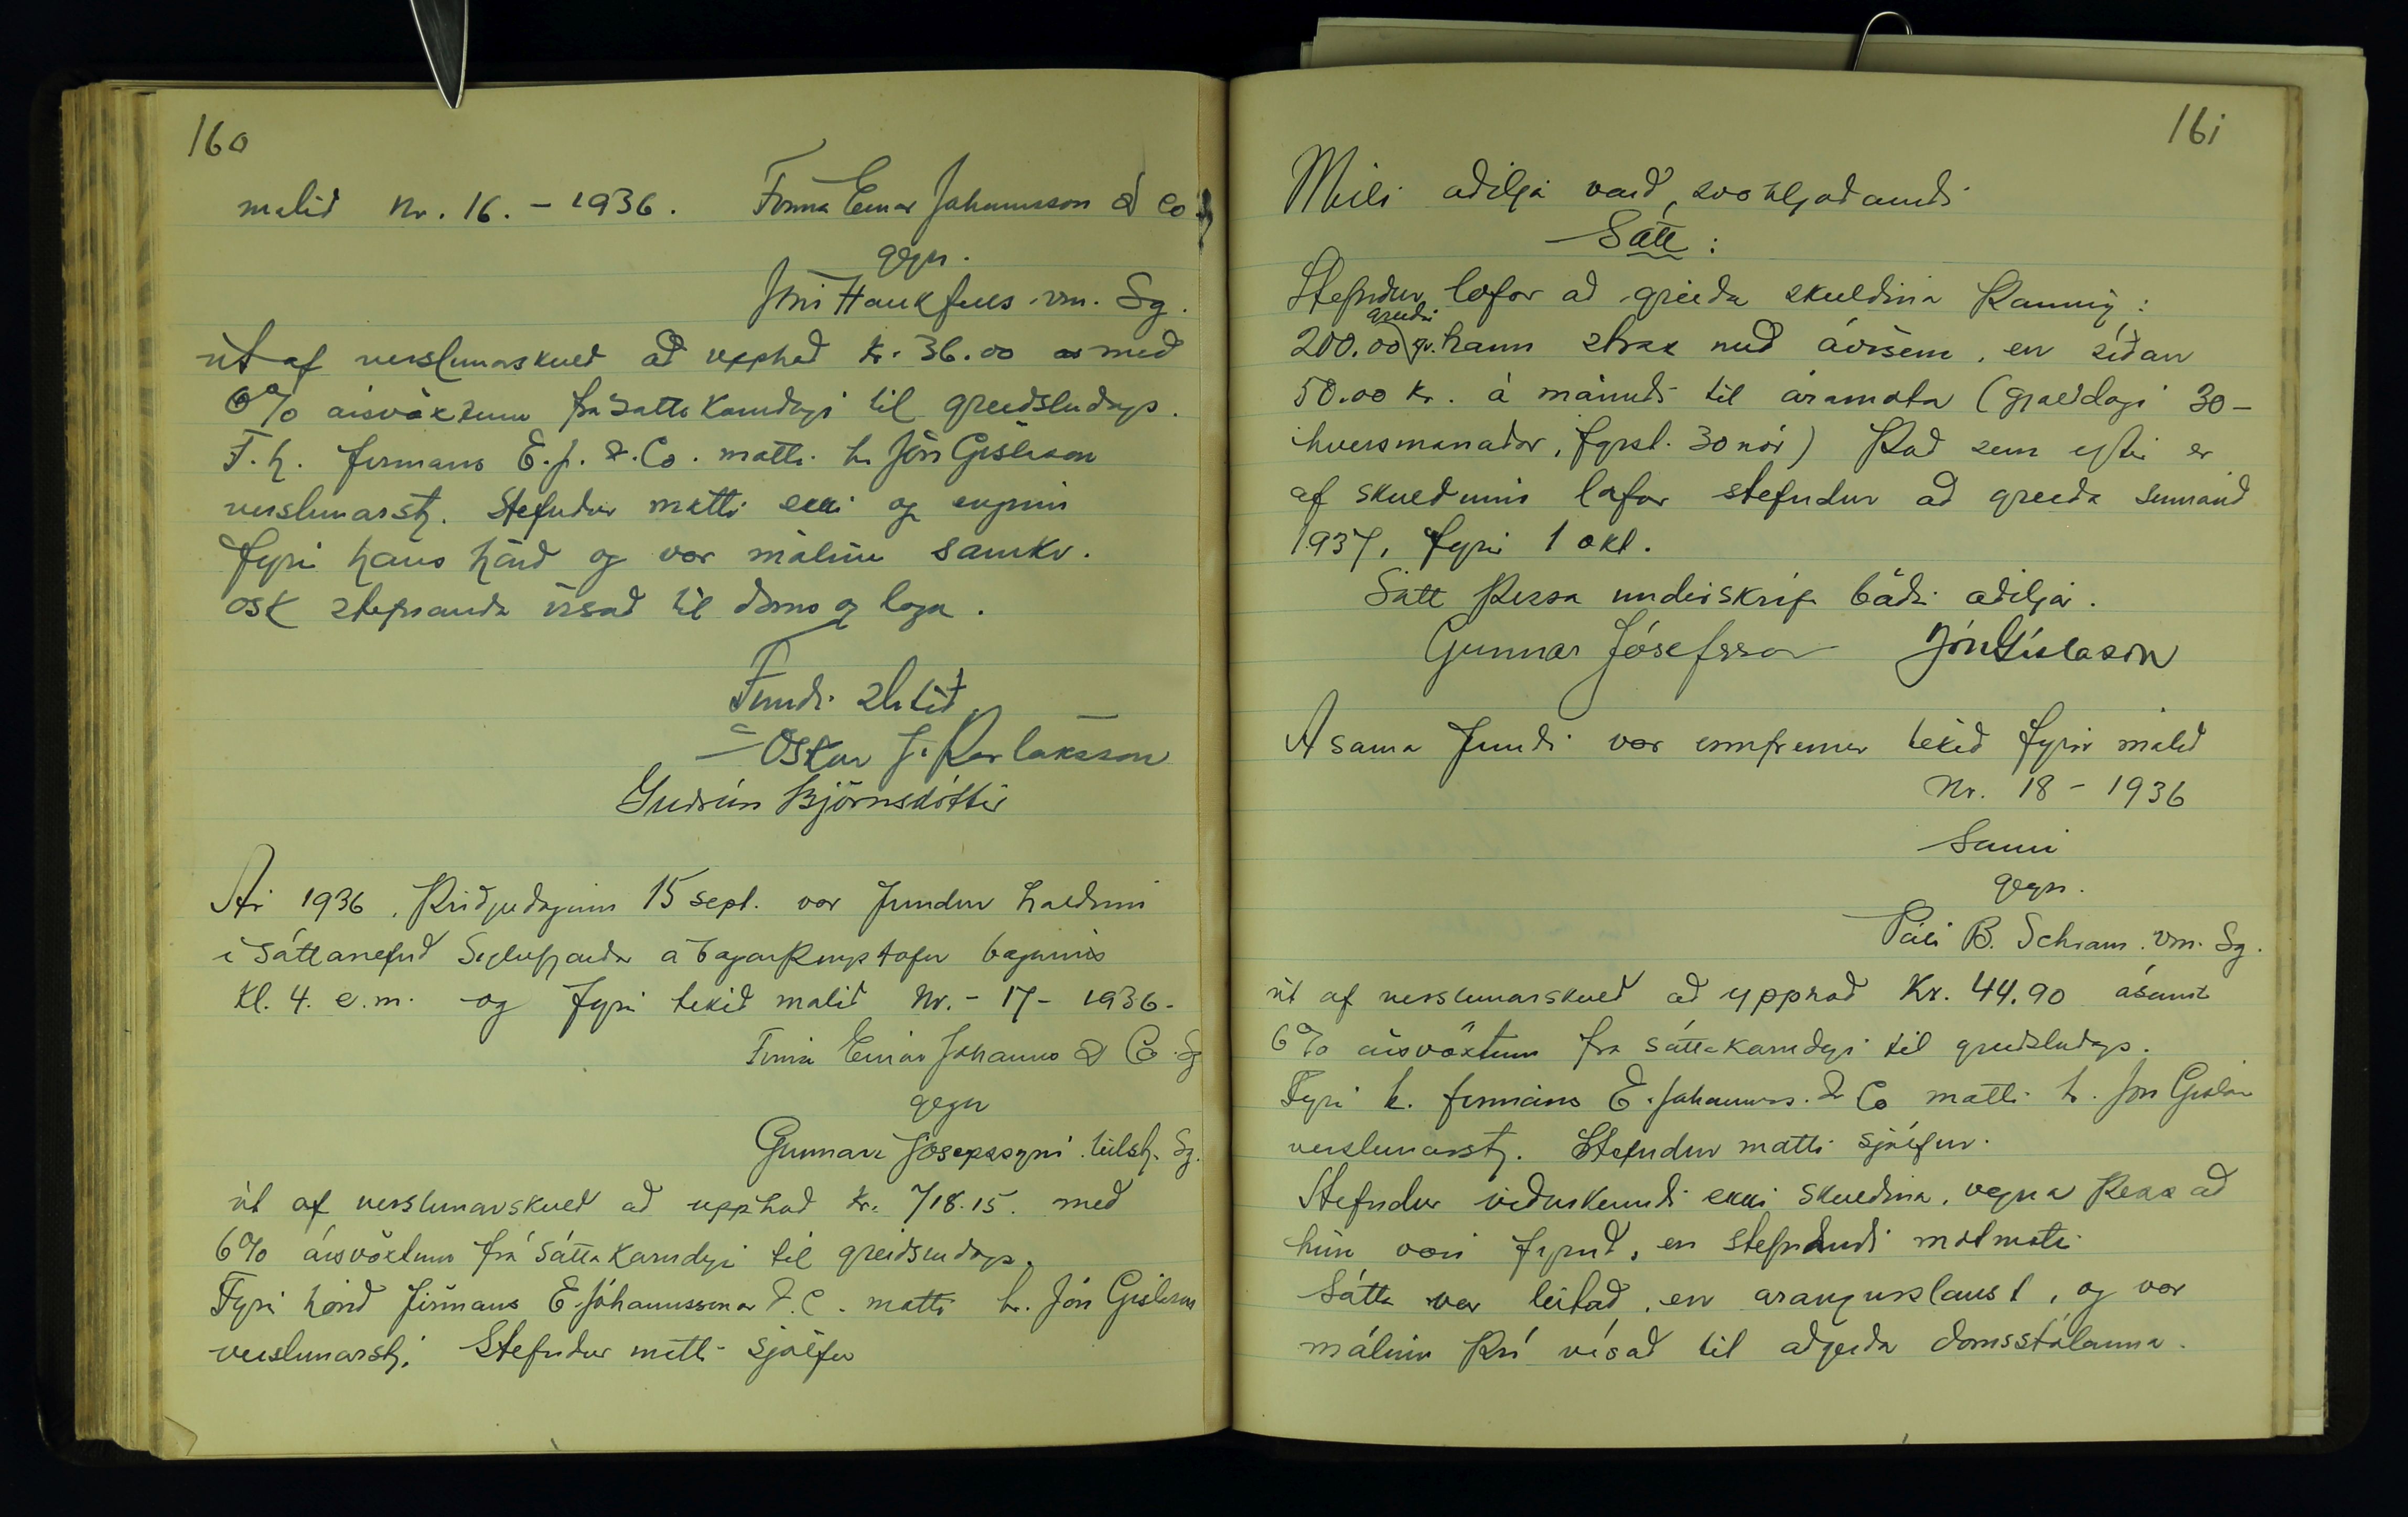 160
málið nr. 16. - 1936. Firma Einar Jóhannsson & Co Sg
gegn.
Jóni Haukfells vm. Sg.
út af verslunarskuld að upphæð kr. 36.00 með
6% ársvöxtum frá sáttakærudegi til greiðsludags.
F. h. firmans E. J. & Co. mætti hr Jón Gíslason
verslunarstj. Stefndur mætti ekki og enginn
fyrir hans hönd og var málinu samkv.
ósk stefnanda vísað til dóms og laga.
Fundi slitið
Óskar J. Þorláksson
Guðrún Björnsdóttir
Ár 1936, Þriðjudaginn 15 sept. var fundur haldinn
í Sáttanefnd Siglufjarðar á bæjarþingstofu bæjarins
kl. 4. e.m. og fyrir tekið málið Nr. - 17 - 1936 -
Firma Einar Jóhannss & Co. Sg
gegn
Gunnari Jósepssyni bílstj. Sg.
út af verslunarskuld að upphæð kr. 718.15. með
6% ársvöxtum frá sáttakærudegi til greiðsludags.
Fyrir hönd firmans E. Jóhannssonar & C. mætti hr. Jón Gíslason
verslunarstj. Stefndur mætti sjálfur
161
Milli aðilja varð, svohljóðandi
Sátt:
Stefndur lofar að greiða skuldina þannig:
greiði
200.00 kr. hann strax með ávísun, en síðan
50.00 kr. á mánuði til áramóta (gjalddagi 30 -
hvers mánaðar, fyrst. 30 nóv) Það sem eftir er
af skuldinni lofar stefndur að greiða sumarið
1937, fyrir 1 okt.
Sátt þessa undirskrifa báðir aðiljar.
Gunnar Jósefsson Jón Gíslason
Á sama fundi var ennfremur tekið fyrir málið
Nr. 18 - 1936
Sami
gegn.
Páli B. Schram. vm. Sg.
út af verslunarskuld að upphæð Kr. 44.90 ásamt
6% ársvöxtum frá sáttakærudegi til greiðsludags.
Fyrir h. firmans E. Jóhannss. & Co mætti hr. Jón Gíslason
verslunarstj. Stefndur mætti sjálfur.
Stefndur viðurkenndi ekki skuldina, vegna þess að
hún væri fyrnd, en stefnandi mótmælti
Sátta var leitað, en árangurslaust, og var
málinu því vísað til aðgerða dómsstólanna.